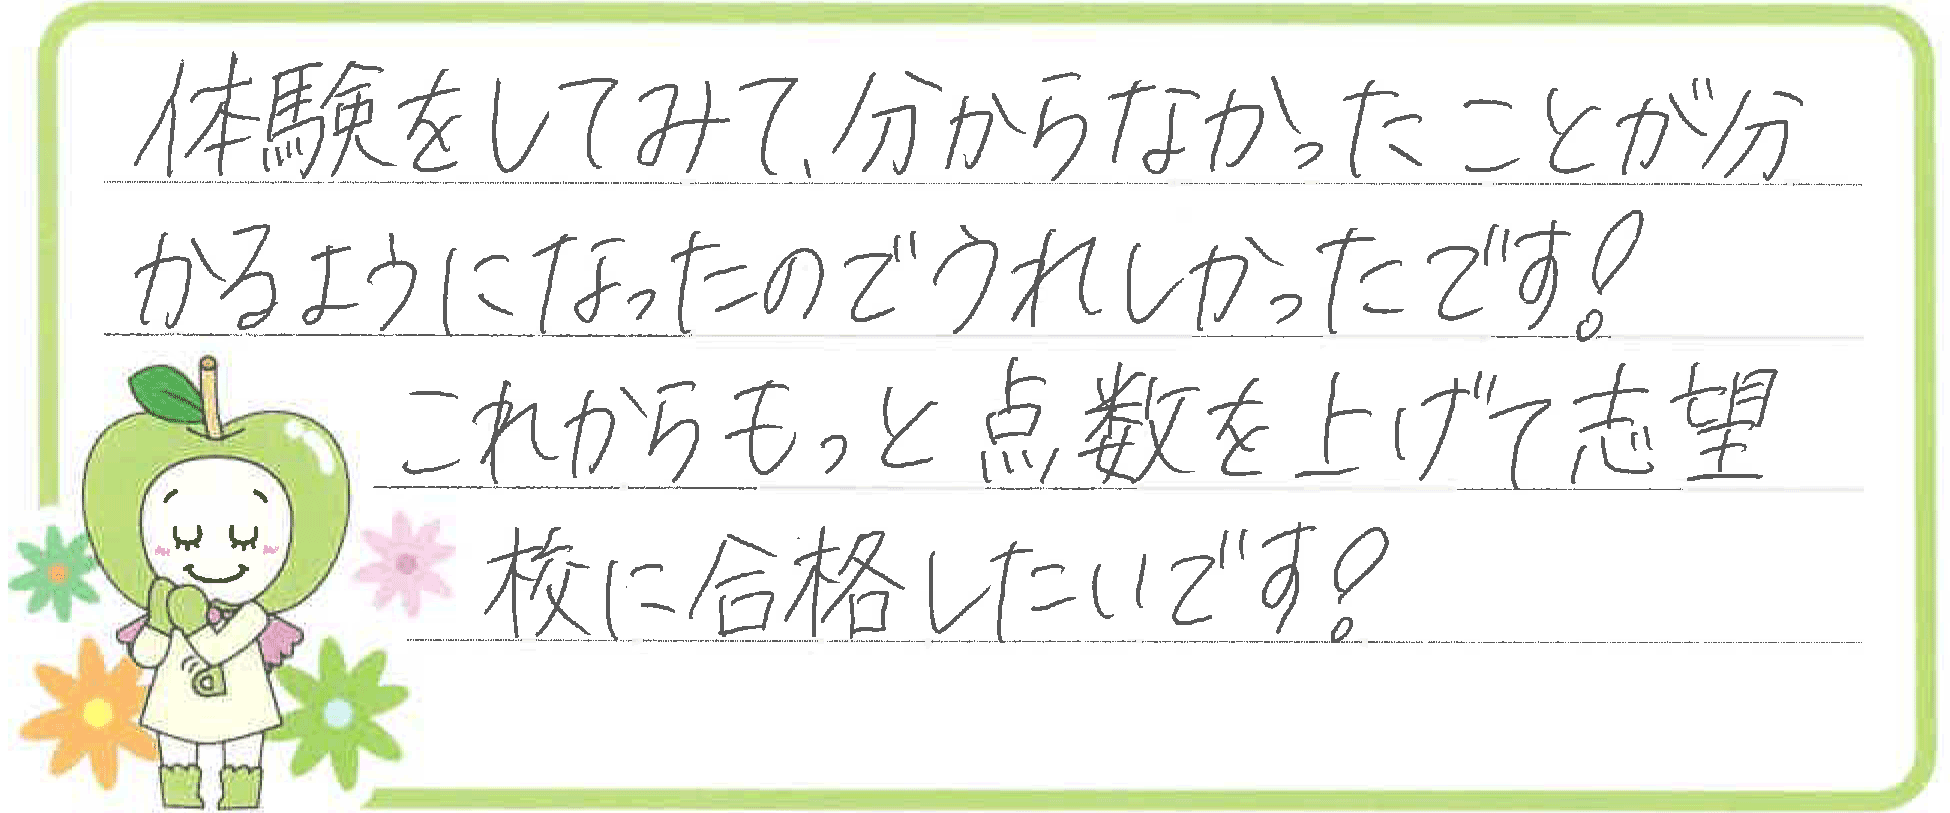 体験をしてみて、分からなかったことが分
かるようになったのでうれしかったです!
これからもっと点数を上げて志望
校に合格したいです!